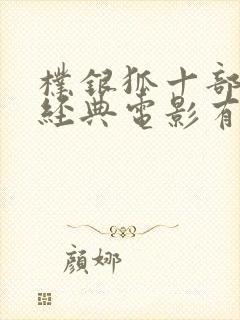 樸銀狐十部
經典電影有
顏娜